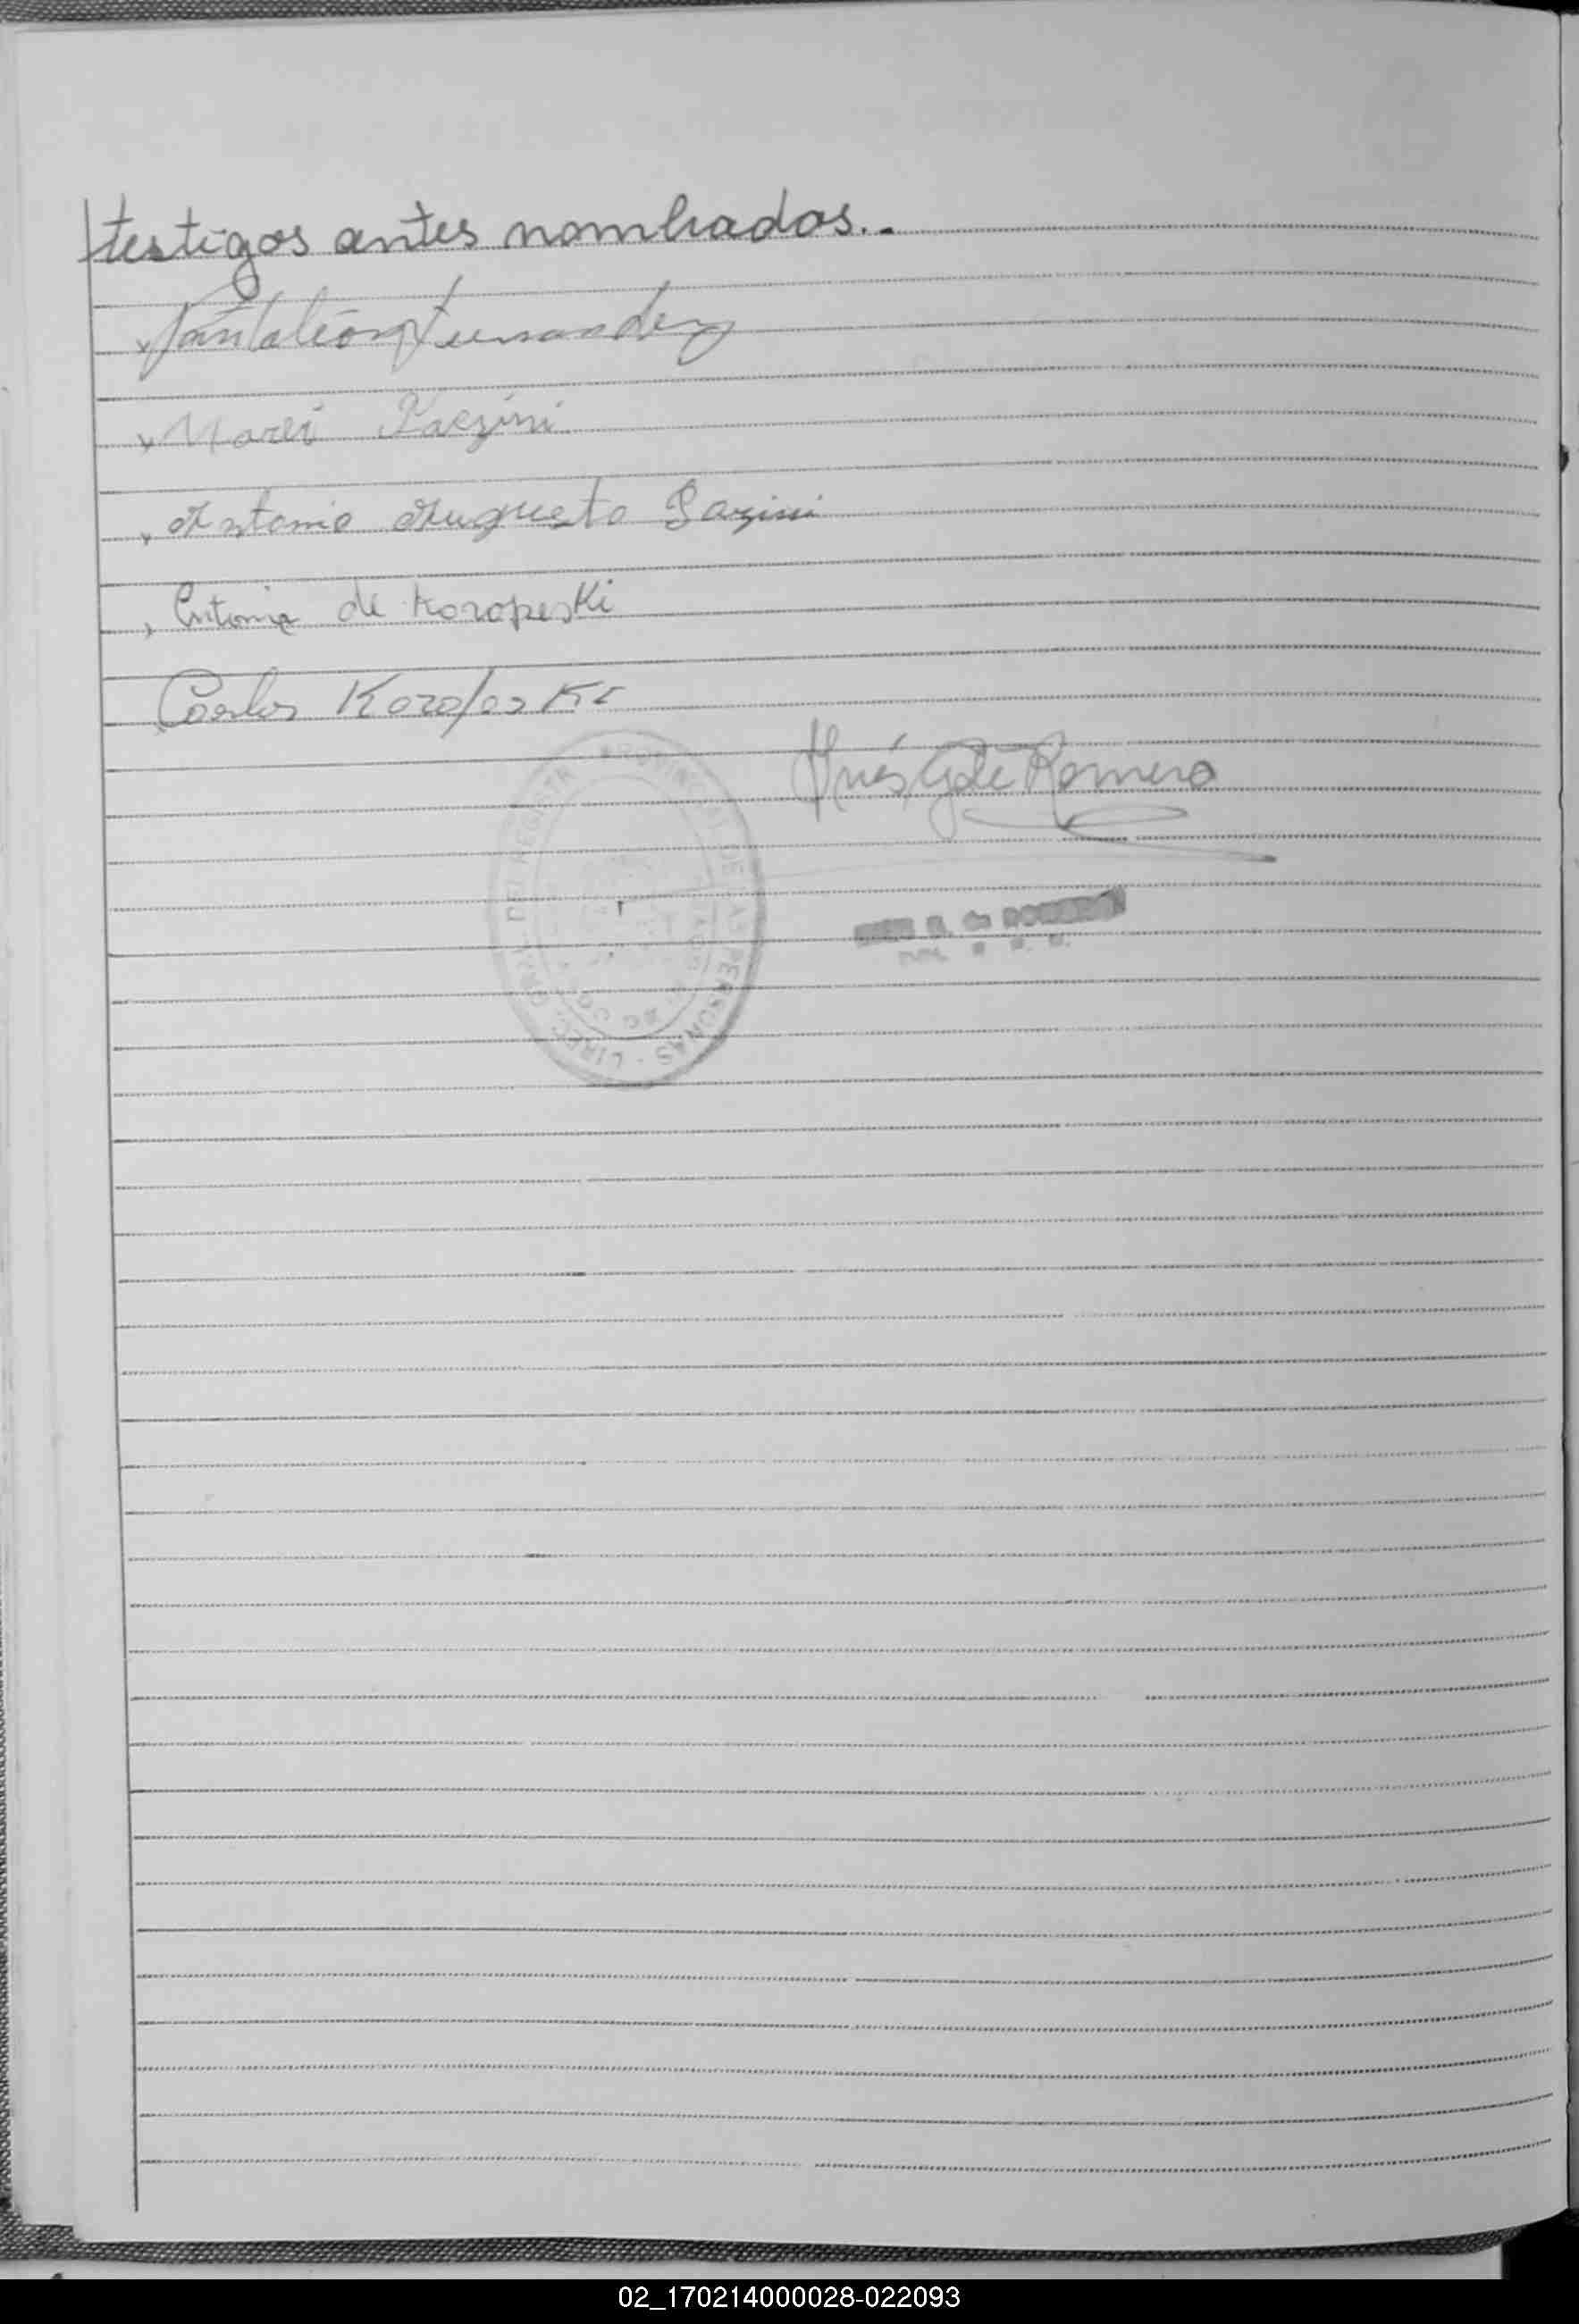 testigos antes nombrados.-
Pantaleón Fernandez
Pazzini
Antonio Augusto Pazini
Antonia de Koropeski
Carlos Koropeski
Inés G de Romero
PROVINCIAL DE LAS PERSONAS
G. de ROMERO
02_170214000028-022093